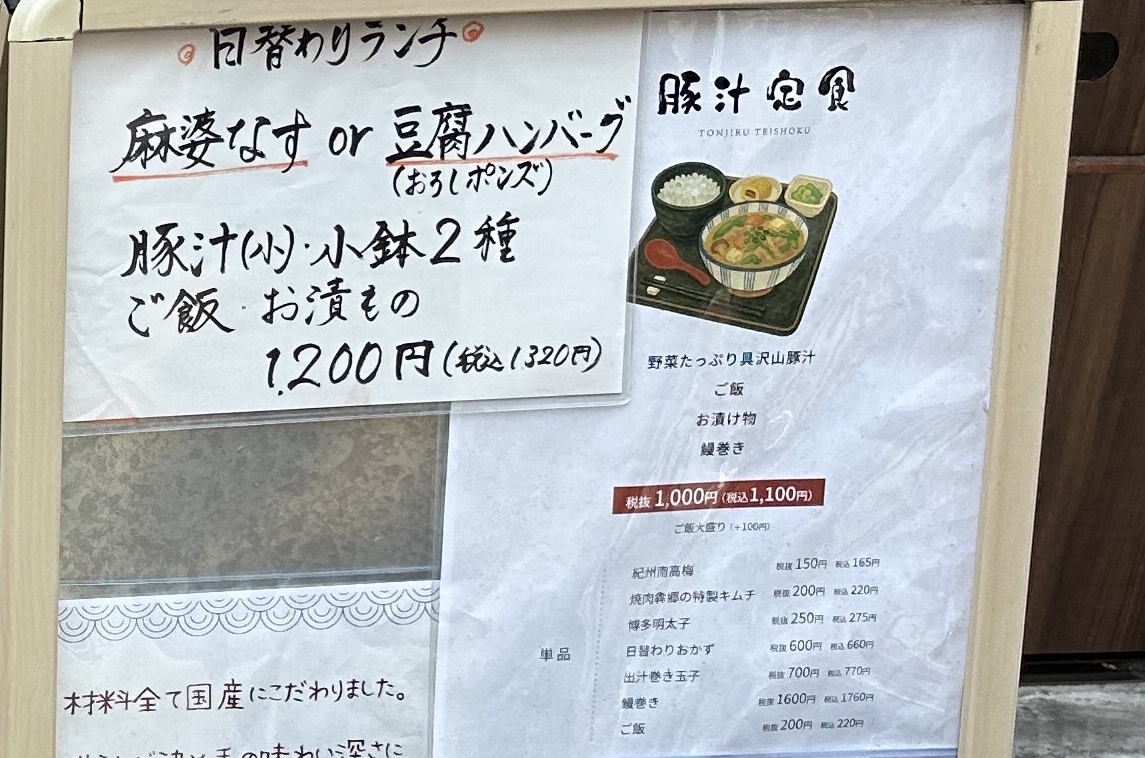 日替わりランチ
麻婆なす or 豆腐ハンバーグ
(おろしポンズ)
豚汁(小)・小鉢2種
ご飯・お漬もの
1,200円(税込1320円)
豚汁定食
TONJIRU TEISHOKU
野菜たっぷり具沢山豚汁
ご飯
お漬け物
鰻巻き
税抜 1,000円 (税込1,100円)
ご飯大盛り (+100円)
単品
紀州南高梅 税抜 150円 税込 165円
焼肉犇郷の特製キムチ 税抜 200円 税込 220円
博多明太子 税抜 250円 税込 275円
日替わりおかず 税抜 600円 税込 660円
出汁巻き玉子 税抜 700円 税込 770円
鰻巻き 税抜 1600円 税込 1760円
ご飯 税抜 200円 税込 220円
材料全て国産にこだわりました。
の味わい深さに